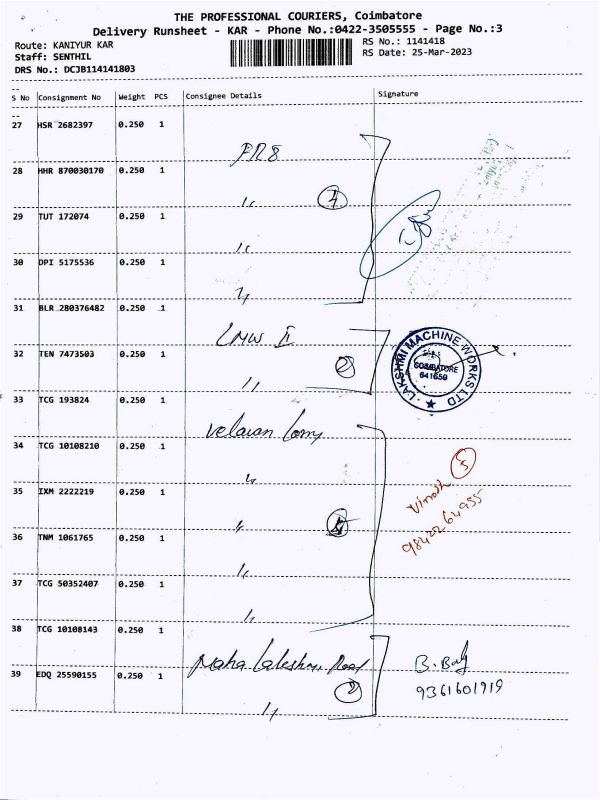 THE PROFESSIONAL COURIERS, Coimbatore
Delivery Runsheet - KAR - Phone No.:0422-3505555 - Page No.:3
Route: KANIYUR KAR
RS No.: 1141418
Staff: SENTHIL
RS Date: 25-Mar-2023
DRS No.: DCJB114141803
S No Consignment No Weight PCS Consignee Details Signature
27 HSR 2682397 0.250 1
28 HHR 870030170 0.250 1
29 TUT 172074 0.250 1
30 DPI 5175536 0.250 1
31 BLR 280376482 0.250 1
LMW II
32 TEN 7473503 0.250 1
2
LAKSHMI MACHINE WORKS LTD
COIMBATORE
641659
33 TCG 193824 0.250 1
velavan
34 TCG 10108210 0.250 1
35 IXM 2222219 0.250 1
Vinoth 5
9842264955
36 TNM 1061765 0.250 1
37 TCG 50352407 0.250 1
38 TCG 10108143 0.250 1
Maha
B.
39 EDQ 25590155 0.250 1
2
9361601919